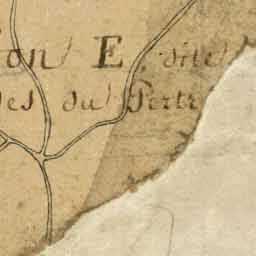 ion E, dite
des du Pertr